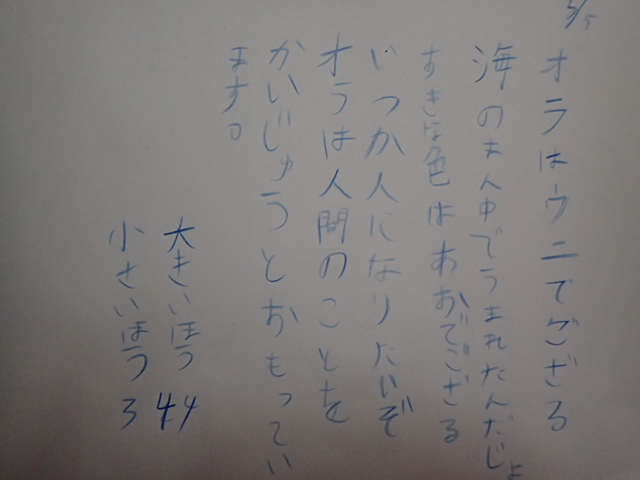 5/5
オラはウニでござる
海のま人中でうまれたんだじょ
すきな色はあおでござる
いつか人になりたいぞ
オラは人間のことを
かいじゅうとおもってい
ます。
大きいほう 44
小さいほう 3